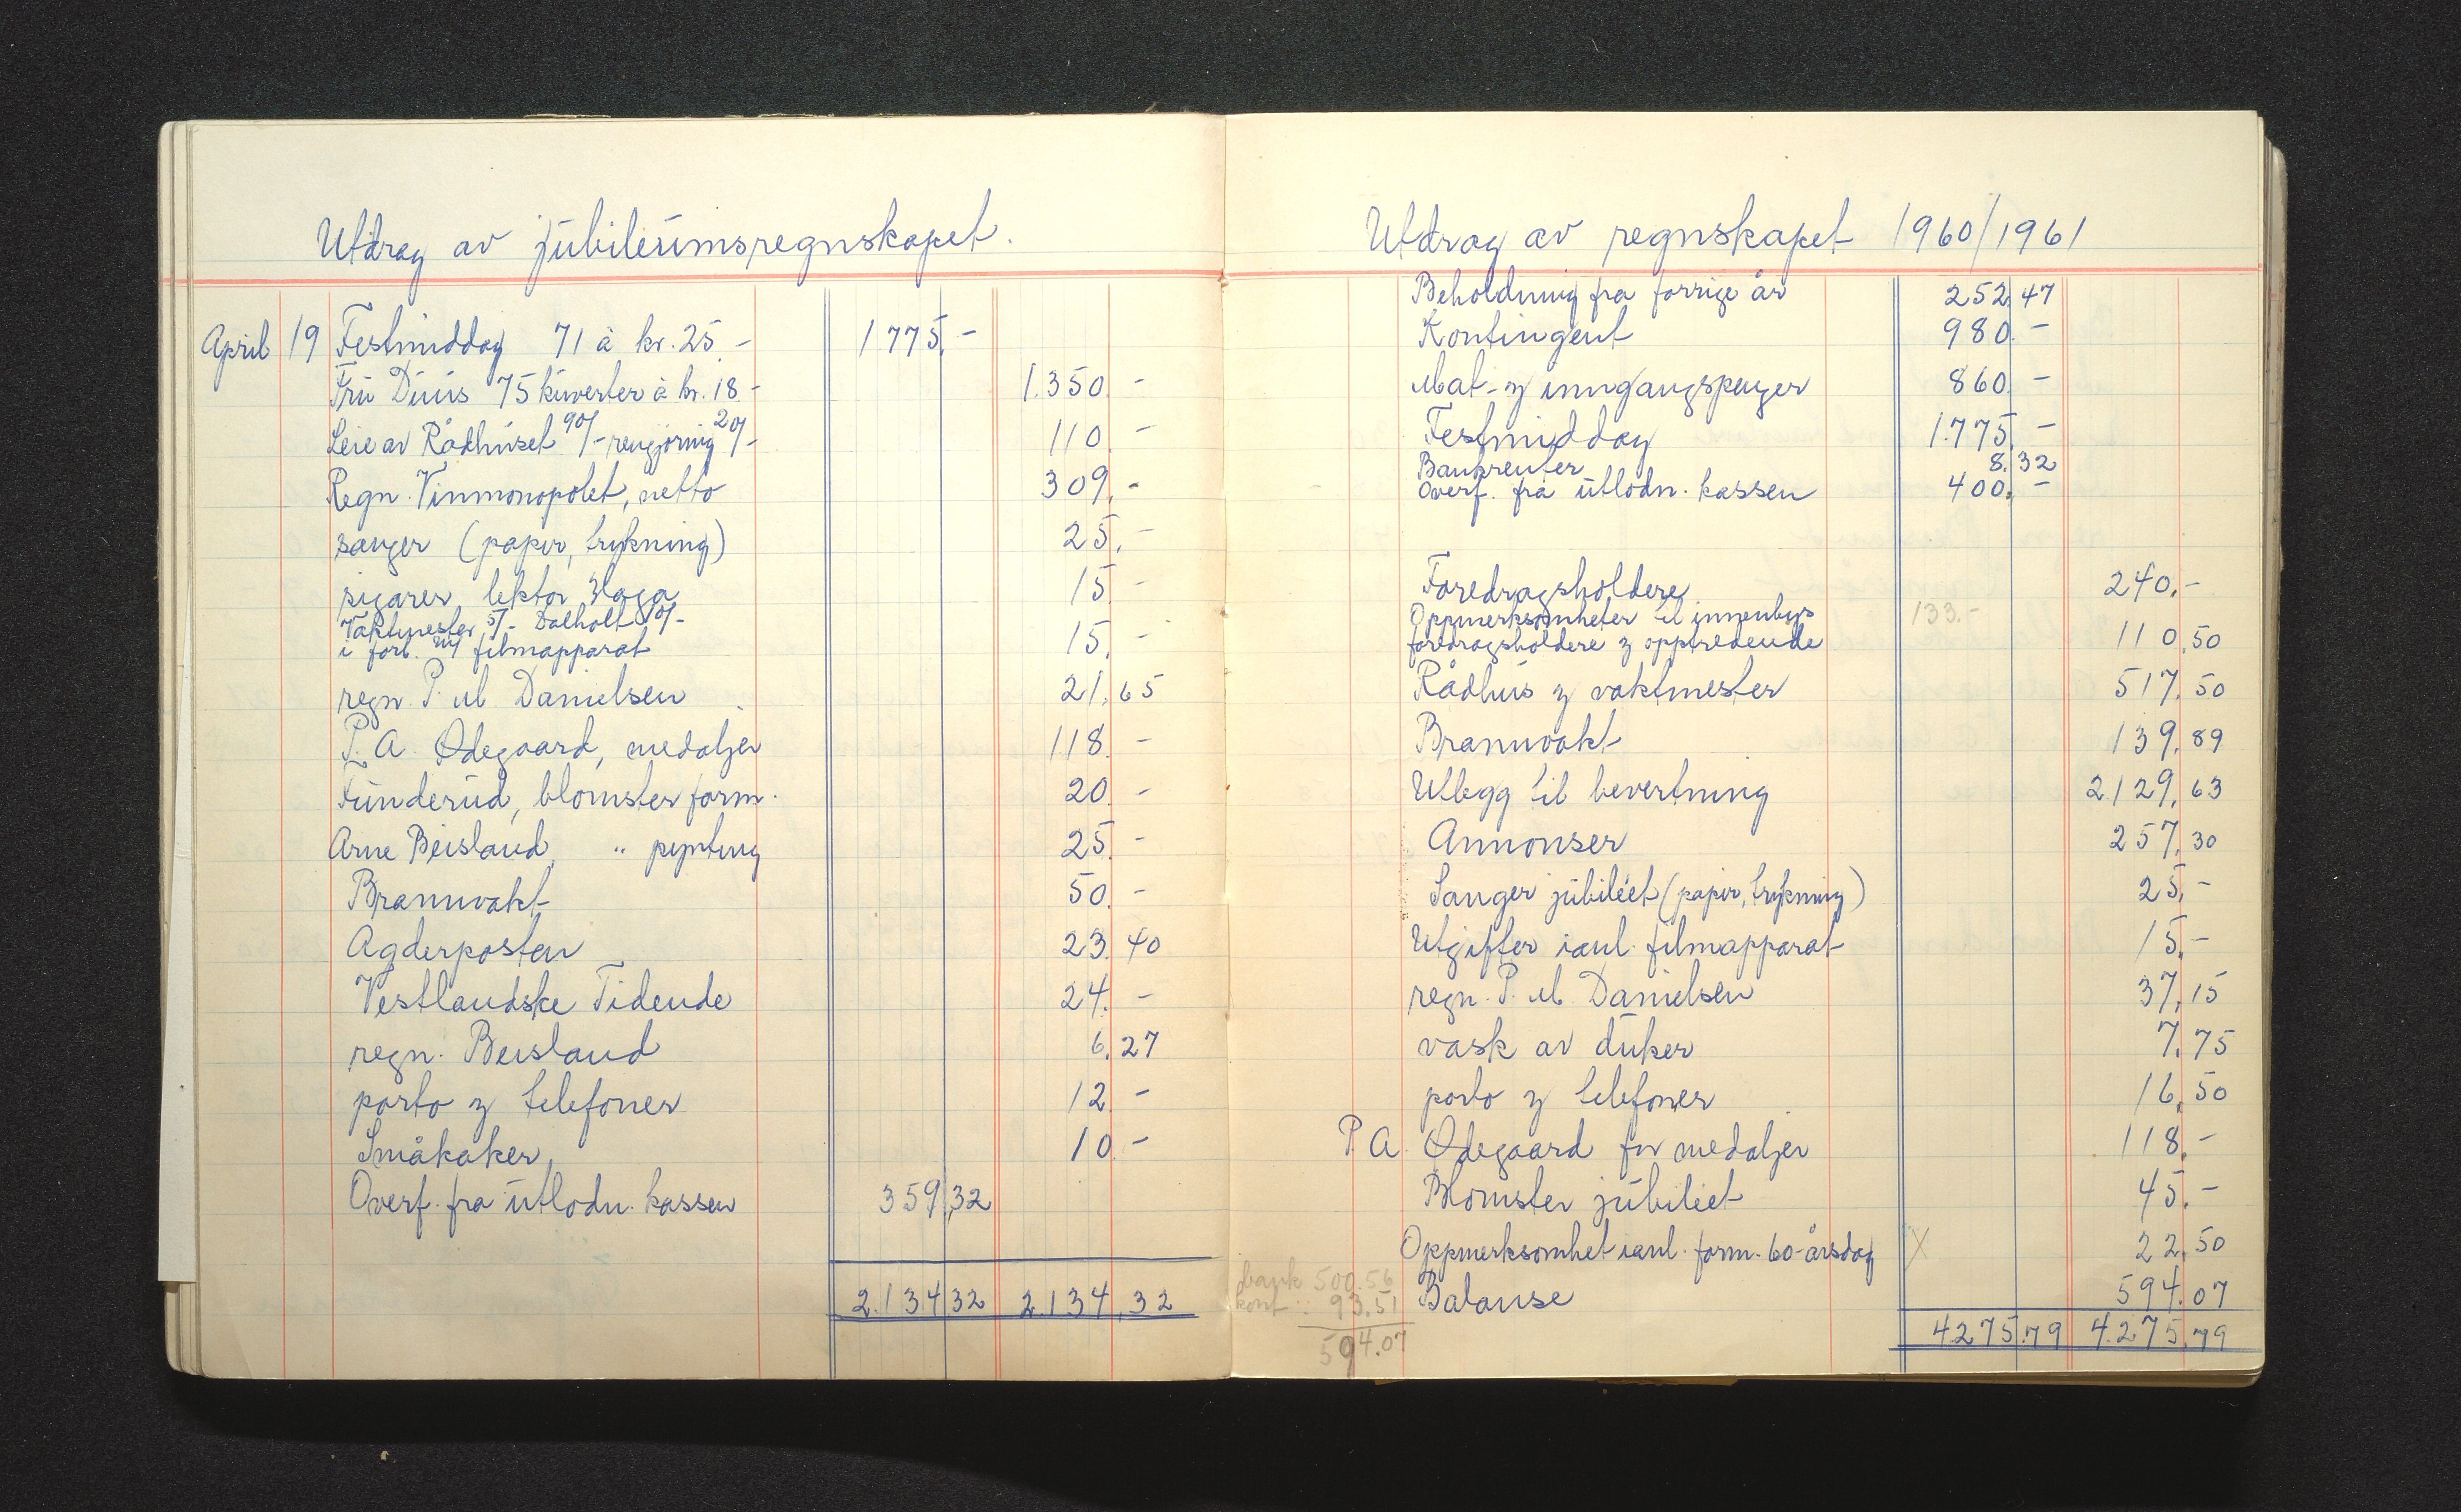 Utdrag av jubileumsregnskapet.
April 19 Festmiddag 71 à kr. 25.- 1775.-
Fru Duus 75 kuverter à kr. 18.- 1.350.-
Leie av Rådhuset 90/- rengjøring 20/- 110.-
Regn. Vinmonopolet, netto 309.-
sanger (papir, trykning) 25.-
sigarer, lektor Haga 15.-
Vaktmester 5/- Dalholt 10/-
i forb. m/ filmapparat 15.-
regn. P. M. Danielsen 21.65
P. A. Ødegaard, medaljer 118.-
Funderud, blomster form. 20.-
Arne Beisland, " pynting 25.-
Brannvakt 50.-
Agderposten 23.40
Vestlandske Tidende 24.-
regn. Beisland 6.27
porto og telefoner 12.-
Småkaker 10.-
Overf. fra utlodn. kassen 359.32
2.134 32 2.134.32
Utdrag av regnskapet 1960/1961
Beholdning fra forrige år 252.47
Kontingent 980.-
Mat- og inngangspenger 860.-
Festmiddag 1.775.-
Bankrenter 8.32
Overf. fra utlodn. kassen 400.-
Foredragsholdere 240.-
Oppmerksomheter til innenbys 133.-
foredragsholdere og opptredende 110.50
Rådhus og vaktmester 517.50
Brannvakt 139.89
Utlegg til bevertning 2129.63
Annonser 257.30
Sanger jubiléet (papir, trykning) 25.-
Utgifter i anl. filmapparat 15.-
regn. P. M. Danielsen 37.15
vask av duker 7.75
porto og telefoner 16.50
P. A. Ødegaard for medaljer 118.-
Blomster jubiléet 45.-
Oppmerksomhet i anl. form. 60-årsdag X 22.50
bank 500.56
kont.: 93.51 Balanse 594.07
594.07
4.275.79 4.275.79